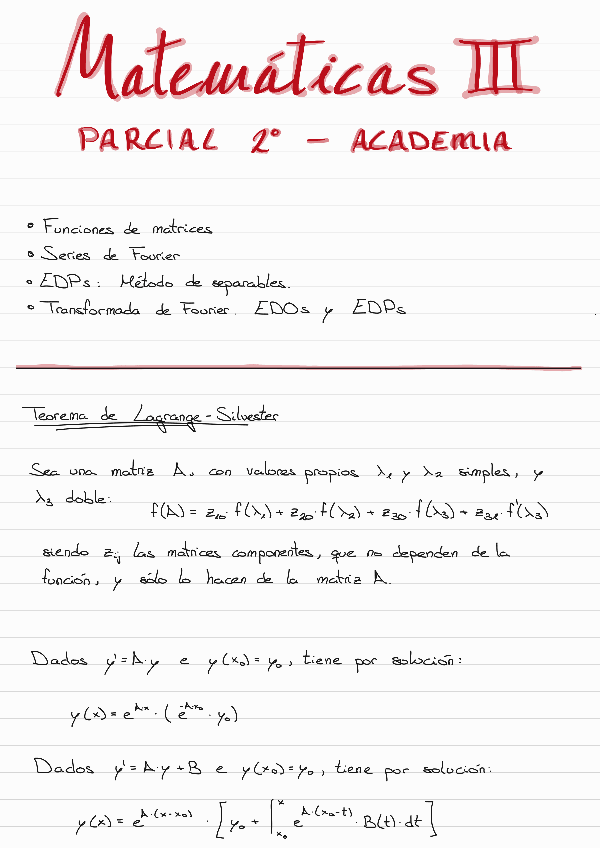 Matemáticas III
PARCIAL 2º - ACADEMIA
• Funciones de matrices
• Series de Fourier
• EDPs: Método de separables.
• Transformada de Fourier. EDOs y EDPs
Teorema de Lagrange - Silvester
Sea una matriz A, con valores propios λ₁ y λ₂ simples, y
λ₃ doble:
f(A) = z₁₀· f(λ₁) + z₂₀· f(λ₂) + z₃₀· f(λ₃) + z₃₁· f'(λ₃)
siendo zᵢⱼ las matrices componentes, que no dependen de la
función, y sólo lo hacen de la matriz A.
Dados y' = A·y e y(x₀) = y₀, tiene por solución:
y(x) = e^{Ax} · (e^{-Ax₀} · y₀)
Dados y' = A·y + B e y(x₀) = y₀, tiene por solución:
y(x) = e^{A·(x-x₀)} · [y₀ + ∫_{x₀}^{x} e^{A·(x₀-t)} · B(t)·dt]